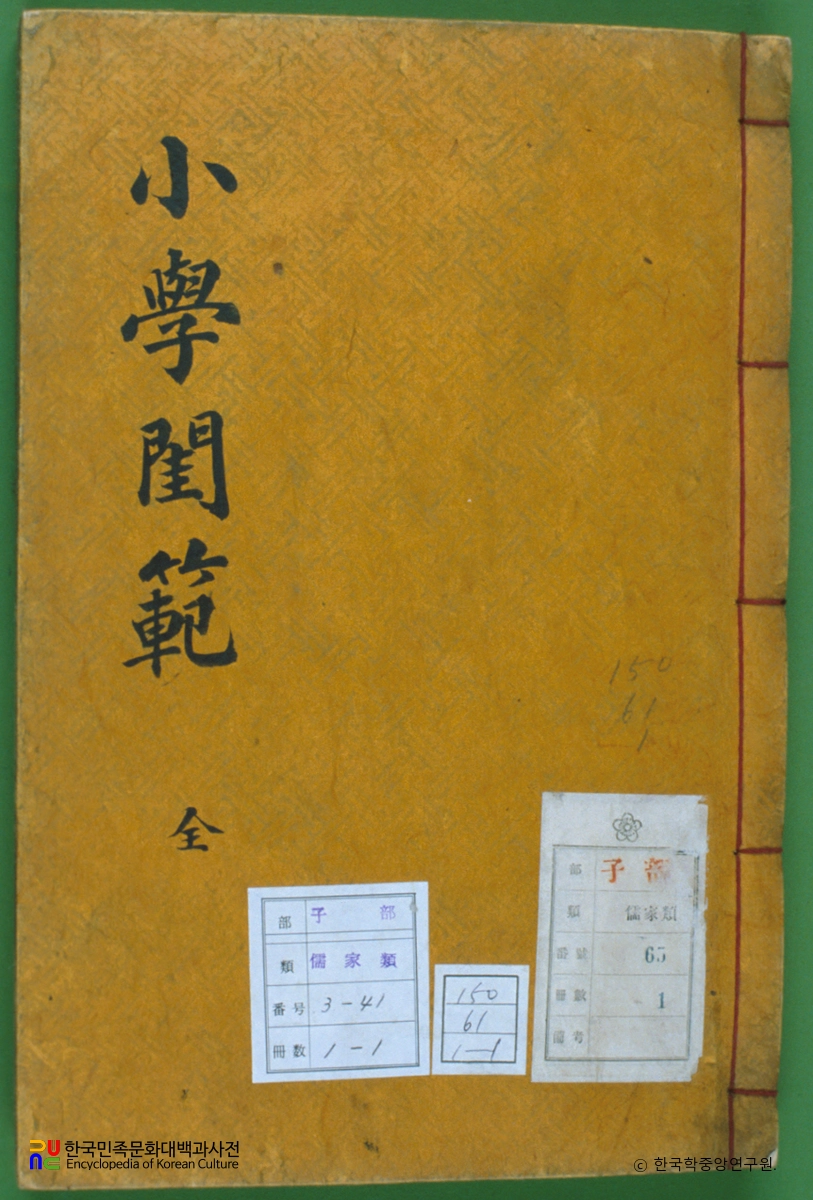 小學閨範
全
150
61
1
部 子 部
類 儒家類
番号 3-41
冊数 1-1
150
61
1-1
部 子 部
類 儒家類
番號 65
冊數 1
備考
한국민족문화대백과사전
Encyclopedia of Korean Culture
© 한국학중앙연구원